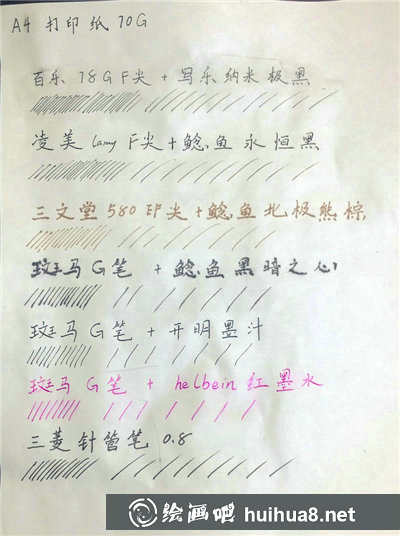 A4 打印纸 70G
百乐 78G F尖 + 写乐纳米极黑
凌美 lamy F尖+鲶鱼永恒黑
三文堂 580 EF尖+鲶鱼北极熊棕
斑马 G笔 + 鲶鱼黑暗之心
斑马 G笔 + 开明墨汁
斑马 G笔 + helbein 红墨水
三菱针管笔 0.8
绘画吧 huihua8.net